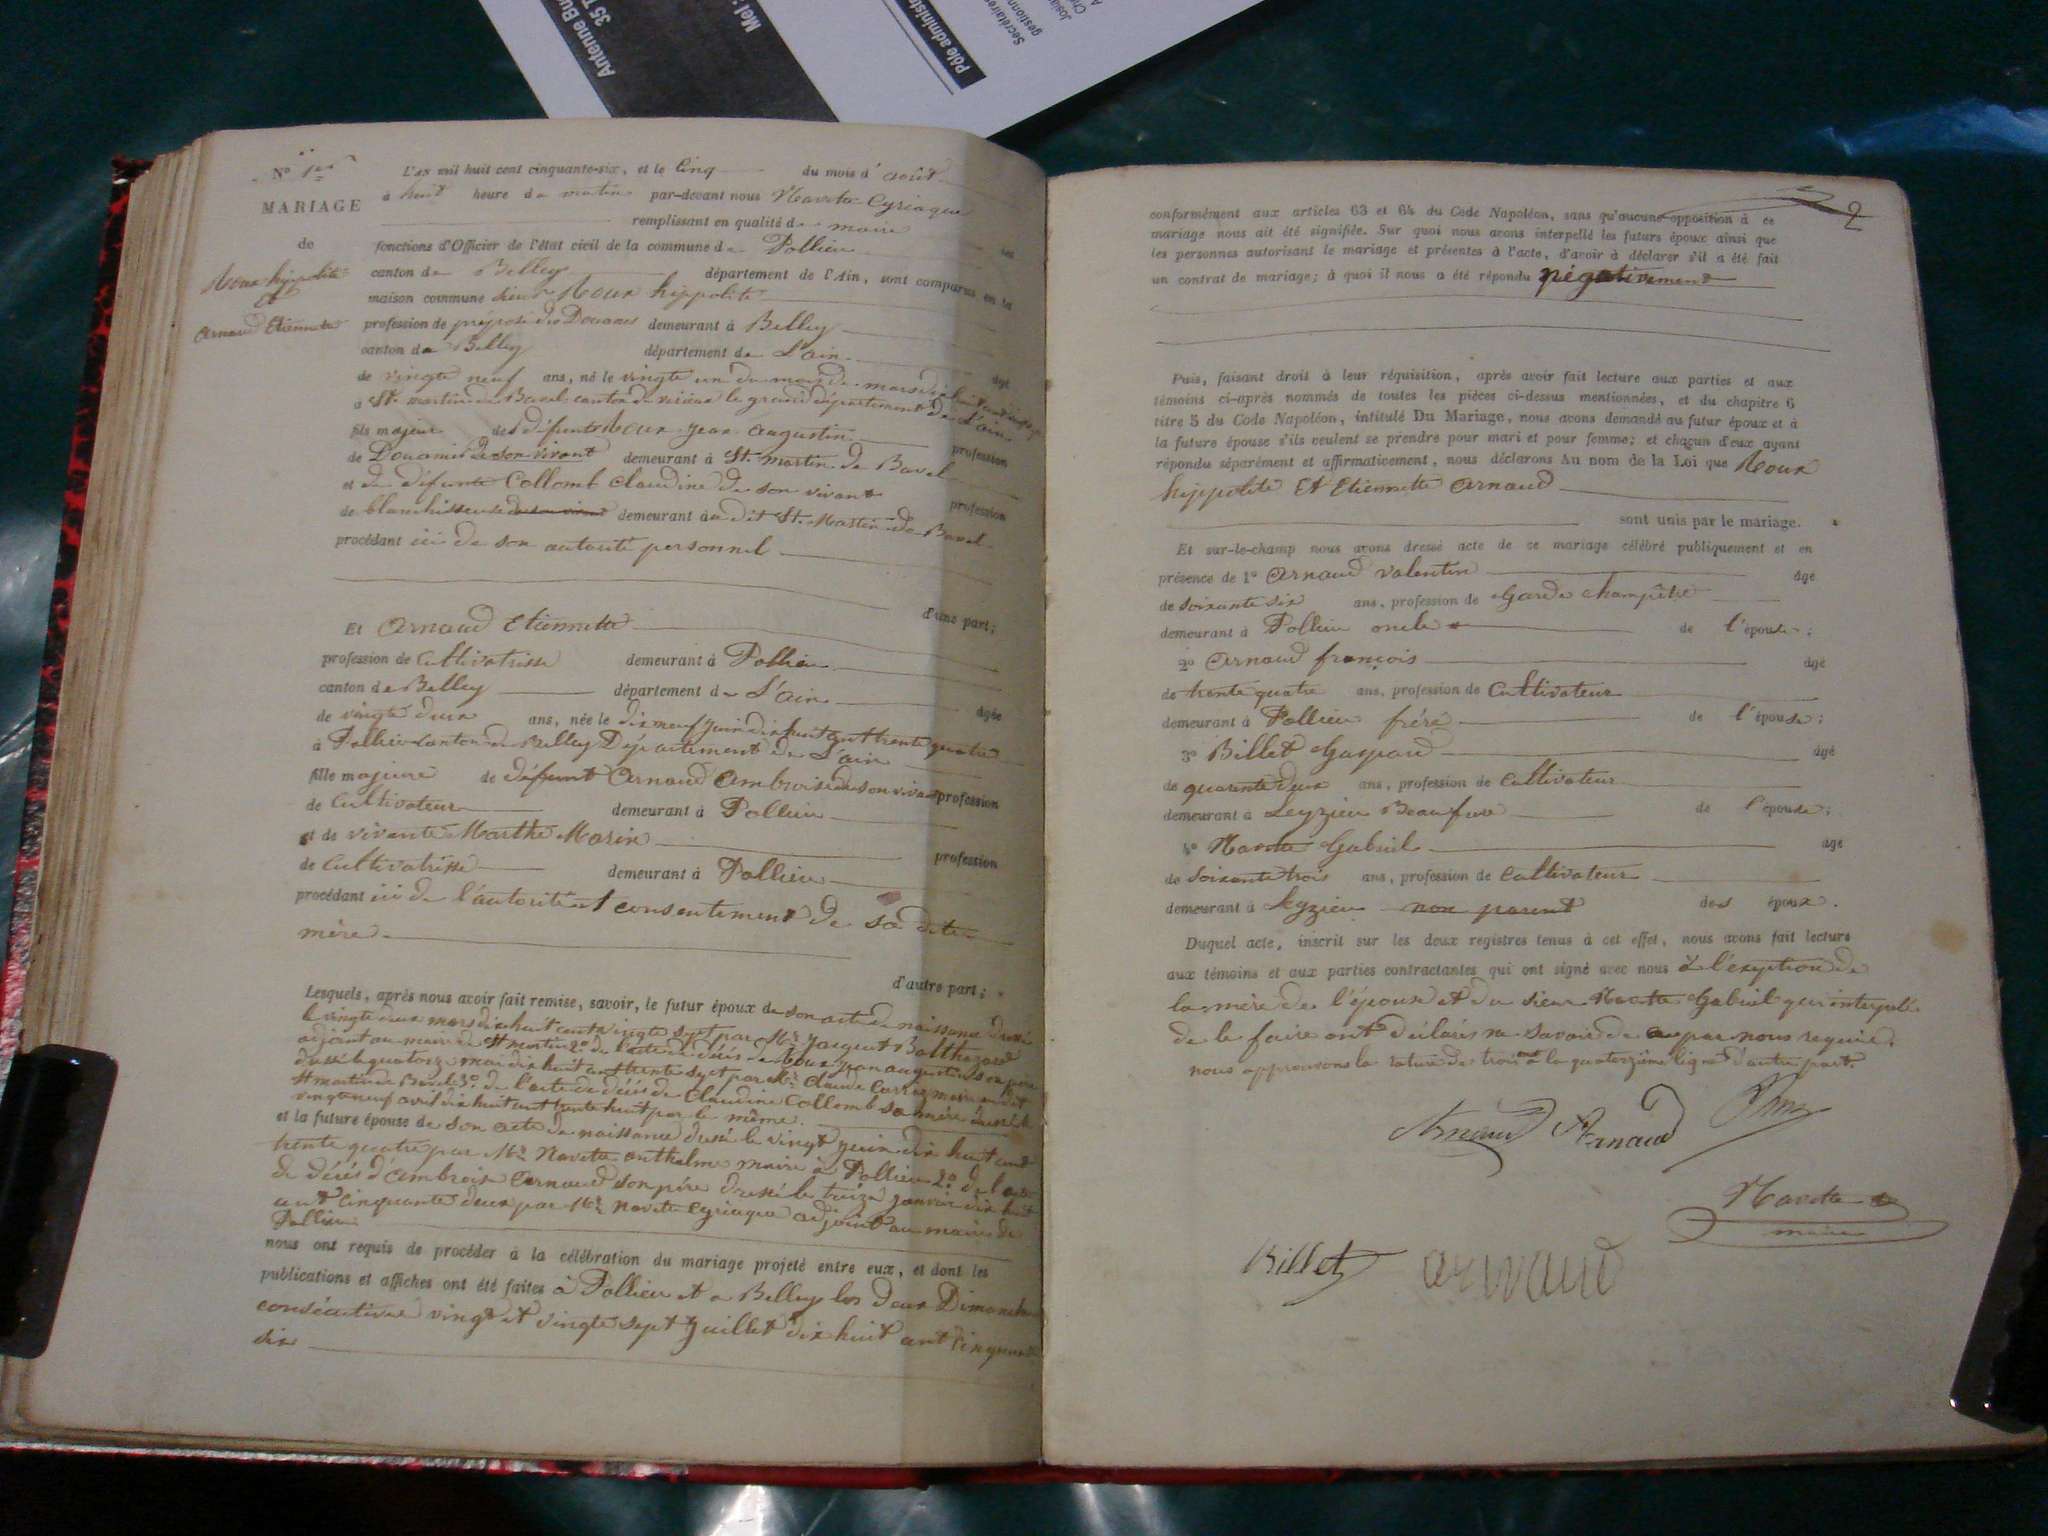 Antenne Bu
35
Mel :
Pôle administ
Secrétaires
gestionn
Josia
Ch
N° 1er
MARIAGE
de
Roux hippolite
et
Arnaud Etiennette
L'AN mil huit cent cinquante-six, et le Cinq du mois d'août
à huit heure du matin par-devant nous Navette Cyriaque
remplissant en qualité de maire les
fonctions d'Officier de l'état civil de la commune de Pollieu
canton de Belley département de l'Ain, sont comparus en la
maison commune sieur Roux hippolite
profession de préposé des Douanes demeurant à Belley
canton de Belley département de L'ain âgé
de vingte neuf ans, né le vingte un du mois de mars dix huit cent vingt sept
à St. martin de Bavel canton de virieux le grand département de L'ain
fils majeur des défunts Roux jean augustin profession
de Douanier de son vivant demeurant à St. martin de Bavel
et de défunte Collomb Claudine de son vivant profession
de blanchisseuse de son vivant demeurant au dit St. Martin de Bavel
procédant ici de son autorité personnel
d'une part;
Et Arnaud Etiennette
profession de Cultivatrisse demeurant à Pollieu
canton de Belley département de L'ain âgée
de vingte deux ans, née le dix neuf juin dix huit cent trente quatre
à Pollieu canton de Belley Département de L'ain
fille majeure de défunt Arnaud Ambroise de son vivant profession
de Cultivateur demeurant à Pollieu
et de vivante Marthe Marin profession
de Cultivatrisse demeurant à Pollieu
procédant ici de l'autorité et consentement de sa dite
mère
d'autre part;
Lesquels, après nous avoir fait remise, savoir, le futur époux de son acte de naissance dressé
le vingte deux mars dix huit cent vingte sept par Mr. jargeut Balthazard
adjoint au maire de St martin 2° de l'acte de décés de Roux jean augustin son père
dressé le quatorze mai dix huit cent trente sept par Mr. Claude Carrier maire au dit
St martin de Bavel 3° de l'acte de décés de Claudine Collomb sa mère dressé le
vingte neuf avril dix huit cent trente huit par le même.
et la future épouse de son acte de naissance dressé le vingt juin dix huit cent
trente quatre par Mr. Navette anthelme maire à Pollieu 2° de l'acte
de décés d'Ambroise Arnaud son père dressé le treize janvier dix huit
cent cinquante deux par Mr. Navette Cyriaque adjoint au maire de
Pollieu
nous ont requis de procéder à la célébration du mariage projeté entre eux, et dont les
publications et affiches ont été faites à Pollieu et a Belley les deux Dimanche
consécutive vingt et vingte sept juillet dix huit cent cinquante
six
2
conformément aux articles 63 et 64 du Code Napoléon, sans qu'aucune opposition à ce
mariage nous ait été signifiée. Sur quoi nous avons interpellé les futurs époux ainsi que
les personnes autorisant le mariage et présentes à l'acte, d'avoir à déclarer s'il a été fait
un contrat de mariage; à quoi il nous a été répondu négativement
Puis, faisant droit à leur réquisition, après avoir fait lecture aux parties et aux
témoins ci-après nommés de toutes les pièces ci-dessus mentionnées, et du chapitre 6
titre 5 du Code Napoléon, intitulé Du Mariage, nous avons demandé au futur époux et à
la future épouse s'ils veulent se prendre pour mari et pour femme; et chacun d'eux ayant
répondu séparément et affirmativement, nous déclarons Au nom de la Loi que Roux
hippolite Et Etiennette Arnaud
sont unis par le mariage.
Et sur-le-champ nous avons dressé acte de ce mariage célébré publiquement et en
présence de 1° Arnaud Valentin âgé
de soixante six ans, profession de Garde champêtre
demeurant à Pollieu oncle de l'épouse;
2° Arnaud françois âgé
de trente quatre ans, profession de Cultivateur
demeurant à Pollieu fréré de l'épouse;
3° Billet Gaspard âgé
de quarente deux ans, profession de Cultivateur
demeurant à Leyzieu Beaufrere de l'épouse;
4° Navette Gabriel âgé
de Soixente trois ans, profession de Cultivateur
demeurant à Leyzieu non parent des époux.
Duquel acte, inscrit sur les deux registres tenus à cet effet, nous avons fait lecture
aux témoins et aux parties contractantes qui ont signé avec nous à l'exeption de
la mère de l'épouse et du sieur Navette Gabriel qui interpelé
de le faire ont déclaré ne savoir de ce par nous requis.
nous approuvons la rature de trois mots à la quaterzième ligne d'autre part.
Arnaud Arnaud Roux
Navette
maire
Billet arnaud